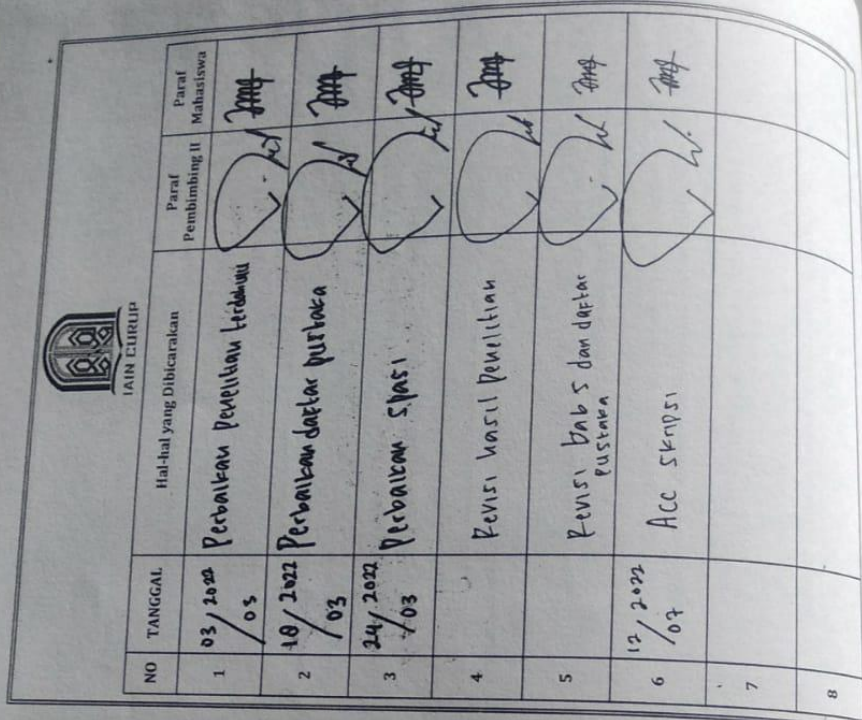 IAIN CURUP
NO TANGGAL Hal-hal yang Dibicarakan Paraf Pembimbing II Paraf Mahasiswa
1 03/2022/03 Perbaikan Penelitian terdahulu
2 18/2022/03 Perbaikan daftar pustaka
3 24/2022/03 Perbaikan spasi
4 Revisi hasil penelitian
5 Revisi bab 5 dan daftar
pustaka
6 12/2022/07 Acc skripsi
7
8